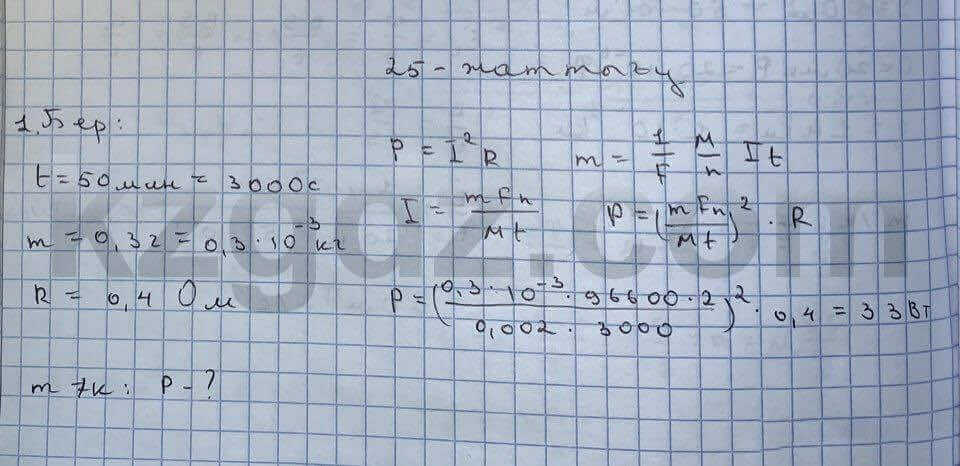 25-жаттығу
1. Бер:
t = 50 мин = 3000с
m = 0,3г = 0,3·10⁻³кг
R = 0,4 Ом
т/к: P - ?
P = I²R
m = 1/F M/n It
I = mFn/Mt
P = (mFn/Mt)² · R
P = (0,3·10⁻³·96600·2/0,002·3000)² · 0,4 = 33Вт
kzgdz.com